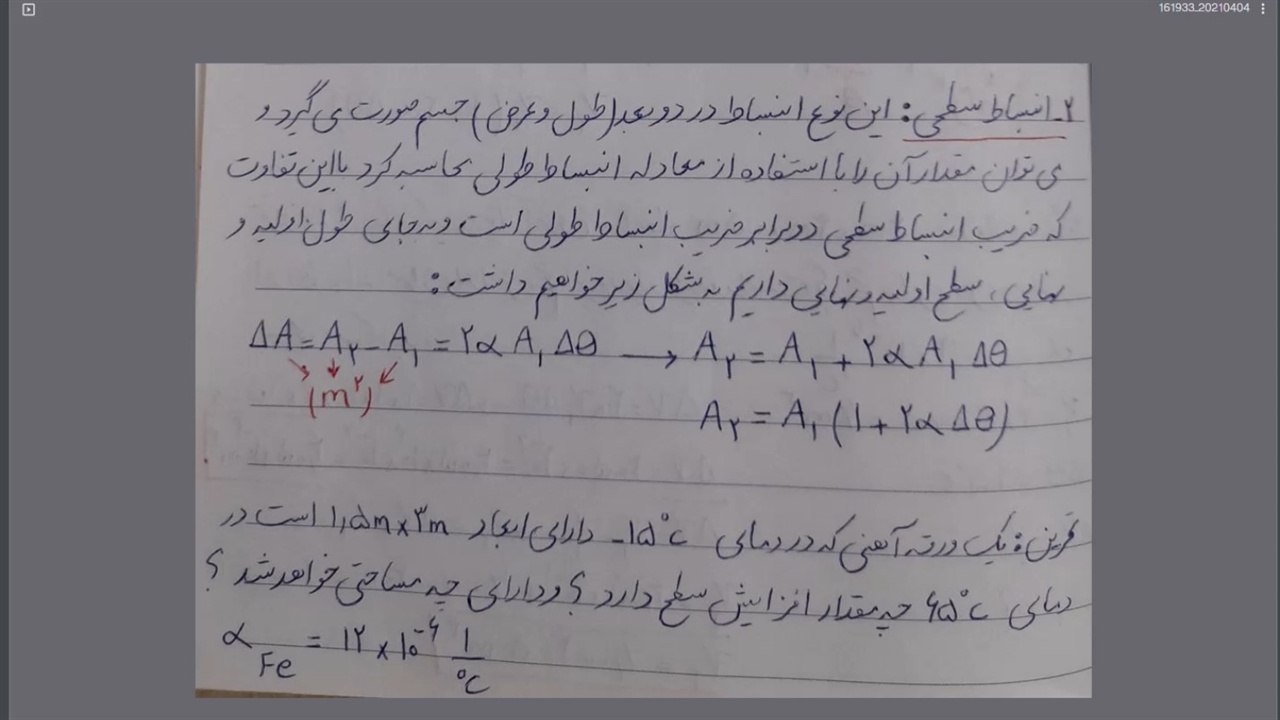 161933.20210404
۲_ انبساط سطحی: این نوع انبساط در دو بعد (طول و عرض) جسم صورت می گیرد و
می توان مقدار آن را با استفاده از معادله انبساط طولی محاسبه کرد با این تفاوت
که ضریب انبساط سطحی دو برابر ضریب انبساط طولی است و به جای طول اولیه و
نهایی، سطح اولیه و نهایی داریم به شکل زیر خواهیم داشت:
ΔA = A۲ - A۱ = ۲α A۱ Δθ → A۲ = A۱ + ۲α A۱ Δθ
(m۲) A۲ = A۱ (۱ + ۲α Δθ)
تمرین: یک ورقه آهنی که در دمای -۱۵°c دارای ابعاد ۱,۵m × ۳m است در
دمای ۶۵°c چه مقدار افزایش سطح دارد؟ و دارای چه مساحتی خواهد شد؟
α Fe = ۱۲ × ۱۰^-۶ ۱/°c